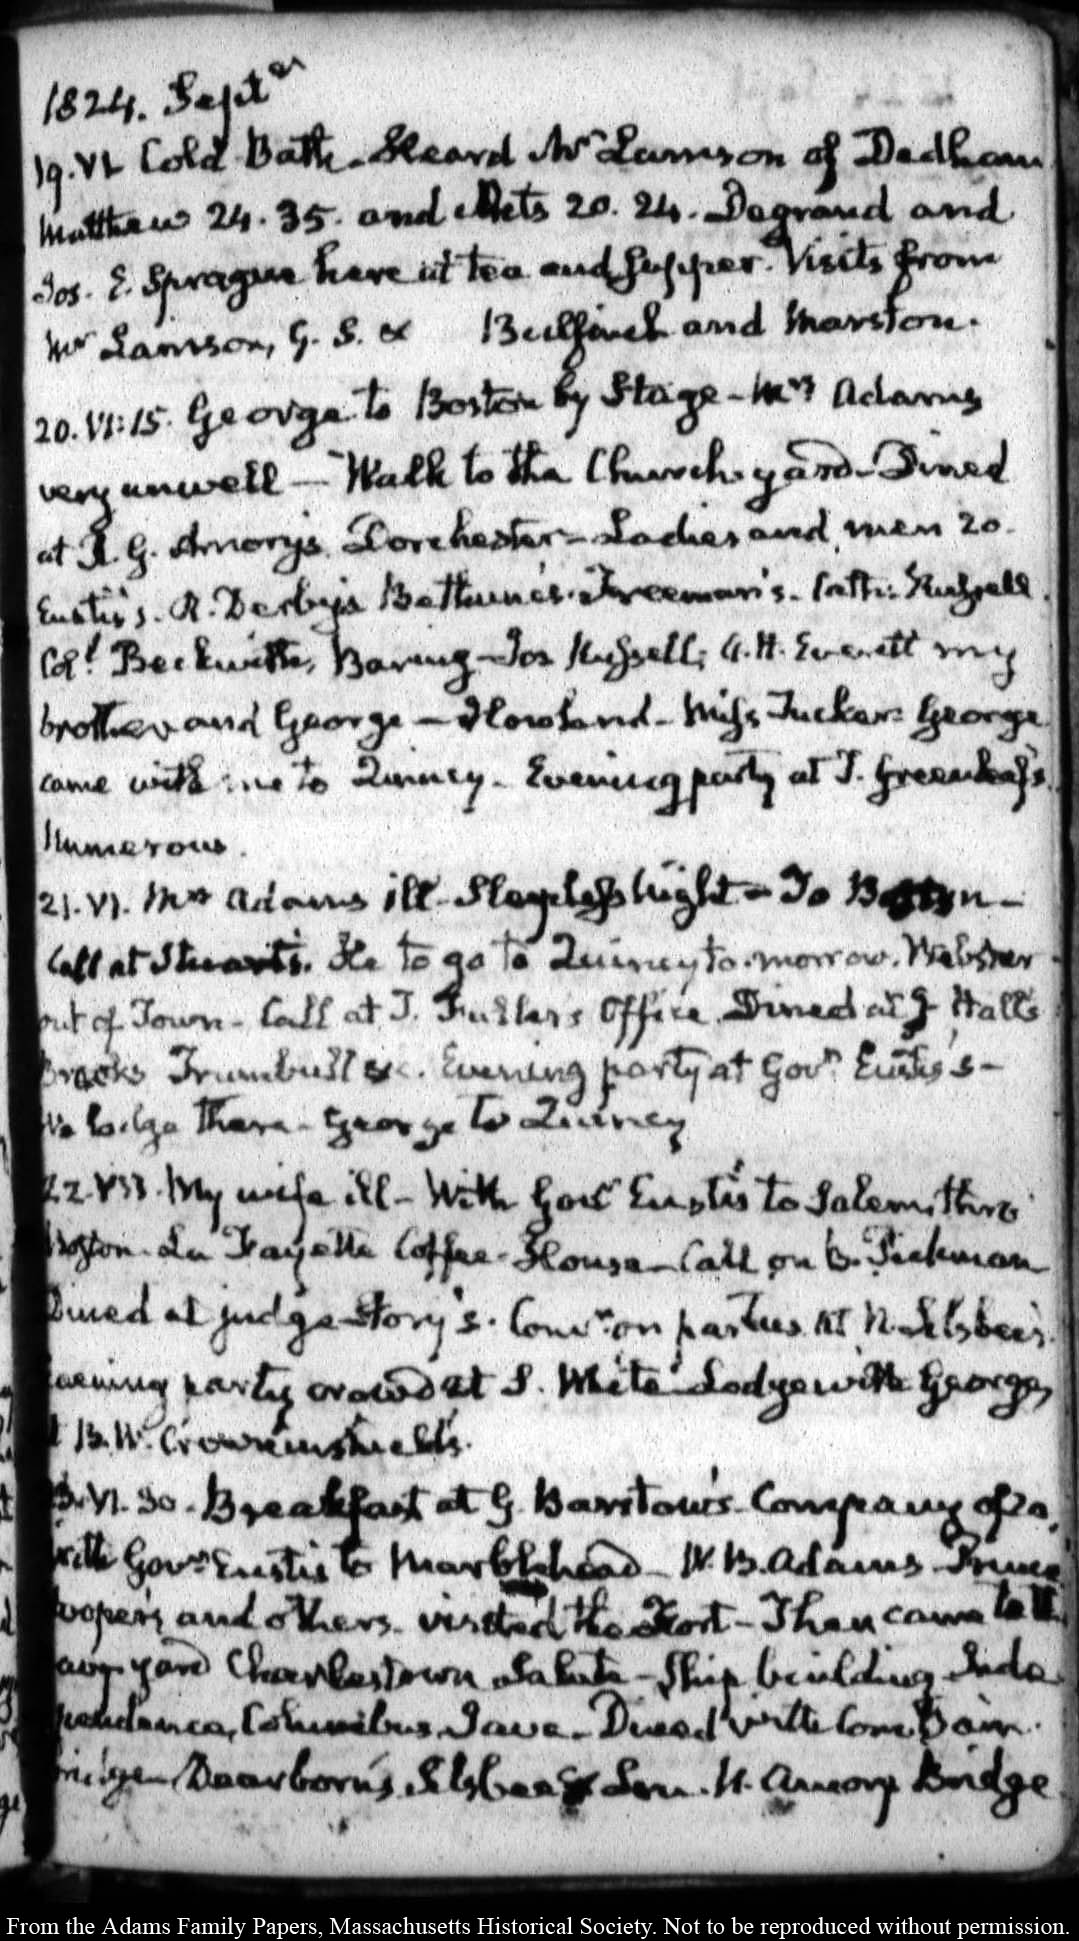 1824. Septer
19. VI. Cold Bath. Heard Mr Lamson of Dedham
Matthew 24. 35. and Acts 20. 24. Degrand and
Jos. E. Sprague here at tea and supper. Visits from
Mr Lamson, G. S. & Bulfinch and Marston.
20. VI:15. George to Boston by Stage — Mrs Adams
very unwell — Walk to the Church-yard — Dined
at J. G. Amory's Dorchester — Ladies and men 20.
Eustis's. R. Derby's Bethune's. Freeman's. Russell.
Coll. Beckwith, Baring — Jos Russell; A. H. Everett my
brother and George — Howland — Miss Tucker. George
came with me to Quincy. Evening party at T. Greenleaf's.
Numerous.
21. VI. Mrs Adams ill. Sleepless Night — To Boston —
Call at Stuart's. He to go to Quincy to-morrow. Webster
out of Town. Call at T. Fuller's Office. Dined at J Hall's
Brooks Trumbull &c. Evening party at Govr. Eustis's —
lodge there — George to Quincy
22. My wife ill — With Govr Eustis to Salem, thro'
Boston. La Fayette Coffee-House — Call on B. Pickman
Dined at judge Story's. on parties at N. Silsbee's.
Evening party crowd at S. White's Lodge with George,
at B. W. Crowninshield's.
23. VI. 30. Breakfast at G. Barstow's Company of 20.
with Govr Eustis to Marblehead — W. B. Adams
Hooper's and others. visited the Fort — Then came to the
Navy-yard Charlestown Salute — Ship building Inde-
pendence, Columbus, Java — Dined with Com. Bain-
bridge — Dearborn's, Silsbee & H. Amory Bridge
From the Adams Family Papers, Massachusetts Historical Society. Not to be reproduced without permission.